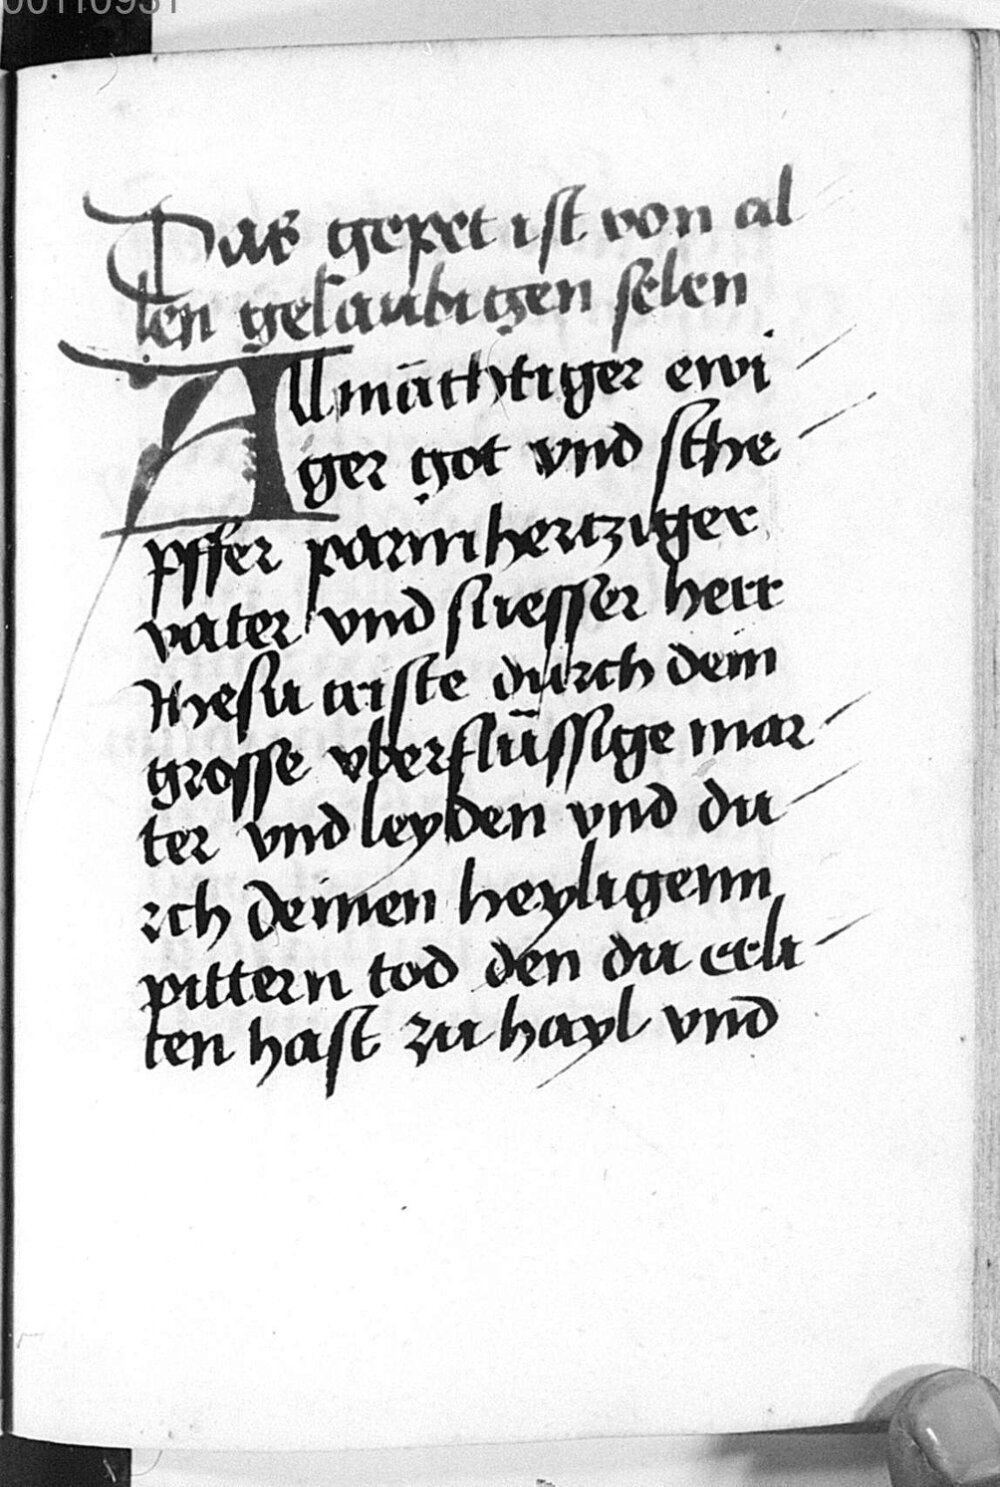 00110931
Das gepet ist von al
len gelaubigen selen
Allmächtiger ewi
ger got vnd sche
pffer parmhertziger
vater vnd suesser herr
Jhesu criste durch dein
grosse vberflüssige mar
ter vnd leyden vnd du
rch deinen heyligenn
pittern tod den du erli
ten hast zu hayl vnd